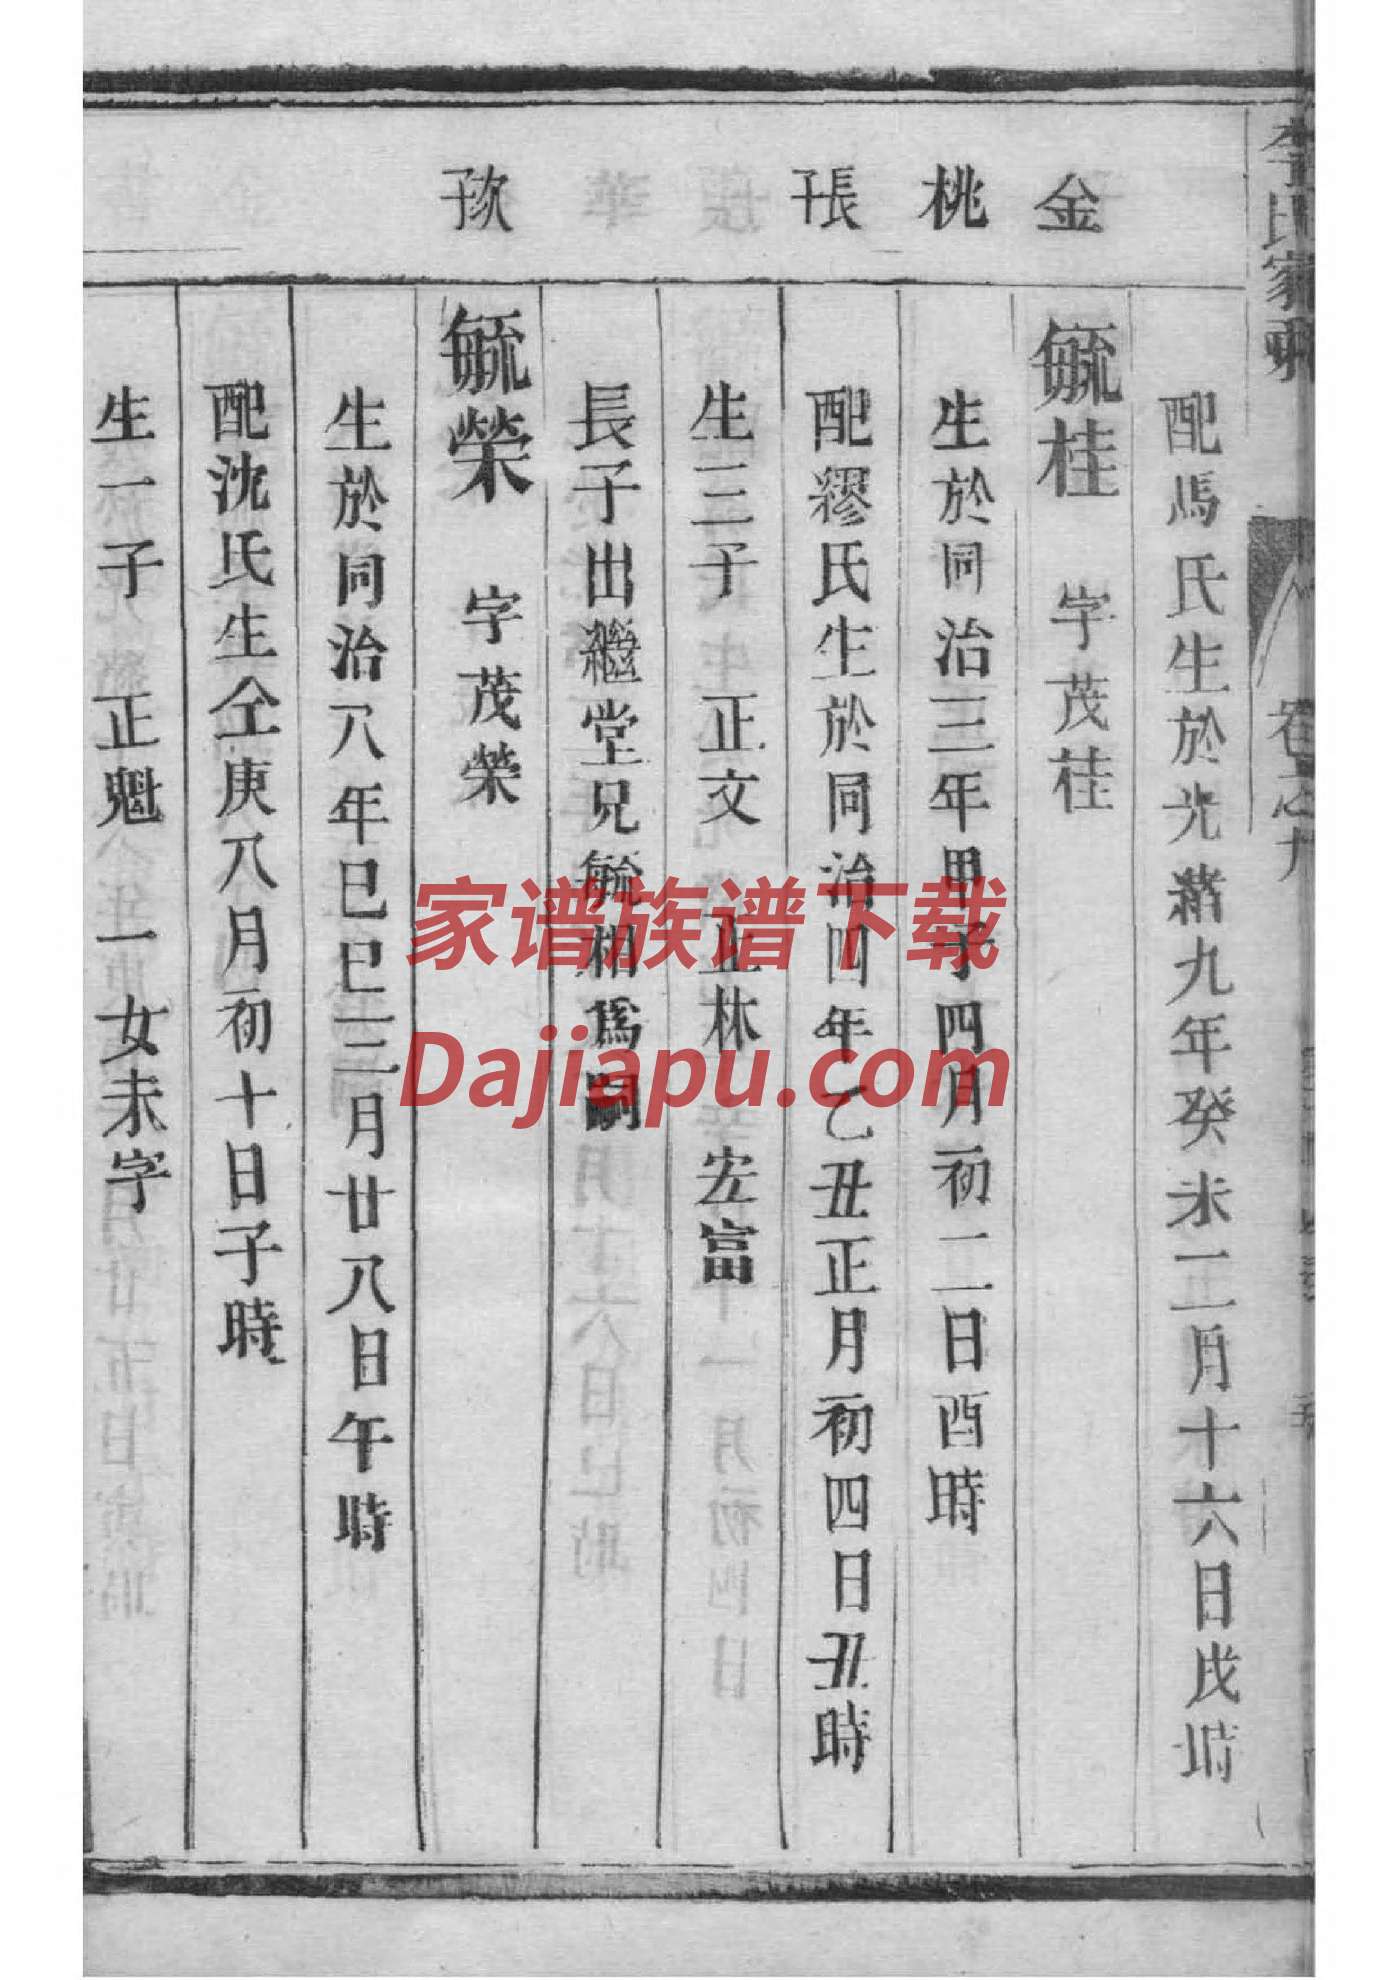 李氏家乘
卷之九
配馬氏生於光緒九年癸未二月十六日戌時
金
毓桂 字茂桂
桃
生於同治三年甲子四月初二日酉時
長子
配繆氏生於同治四年乙丑正月初四日丑時
生三子 正文 正林 宏富
長子出繼堂兄毓相爲嗣
次子
毓榮 字茂榮
生於同治八年己巳三月廿八日午時
配沈氏生仝庚八月初十日子時
生一子 正魁 一女未字
家谱族谱下载
Dajiapu.com